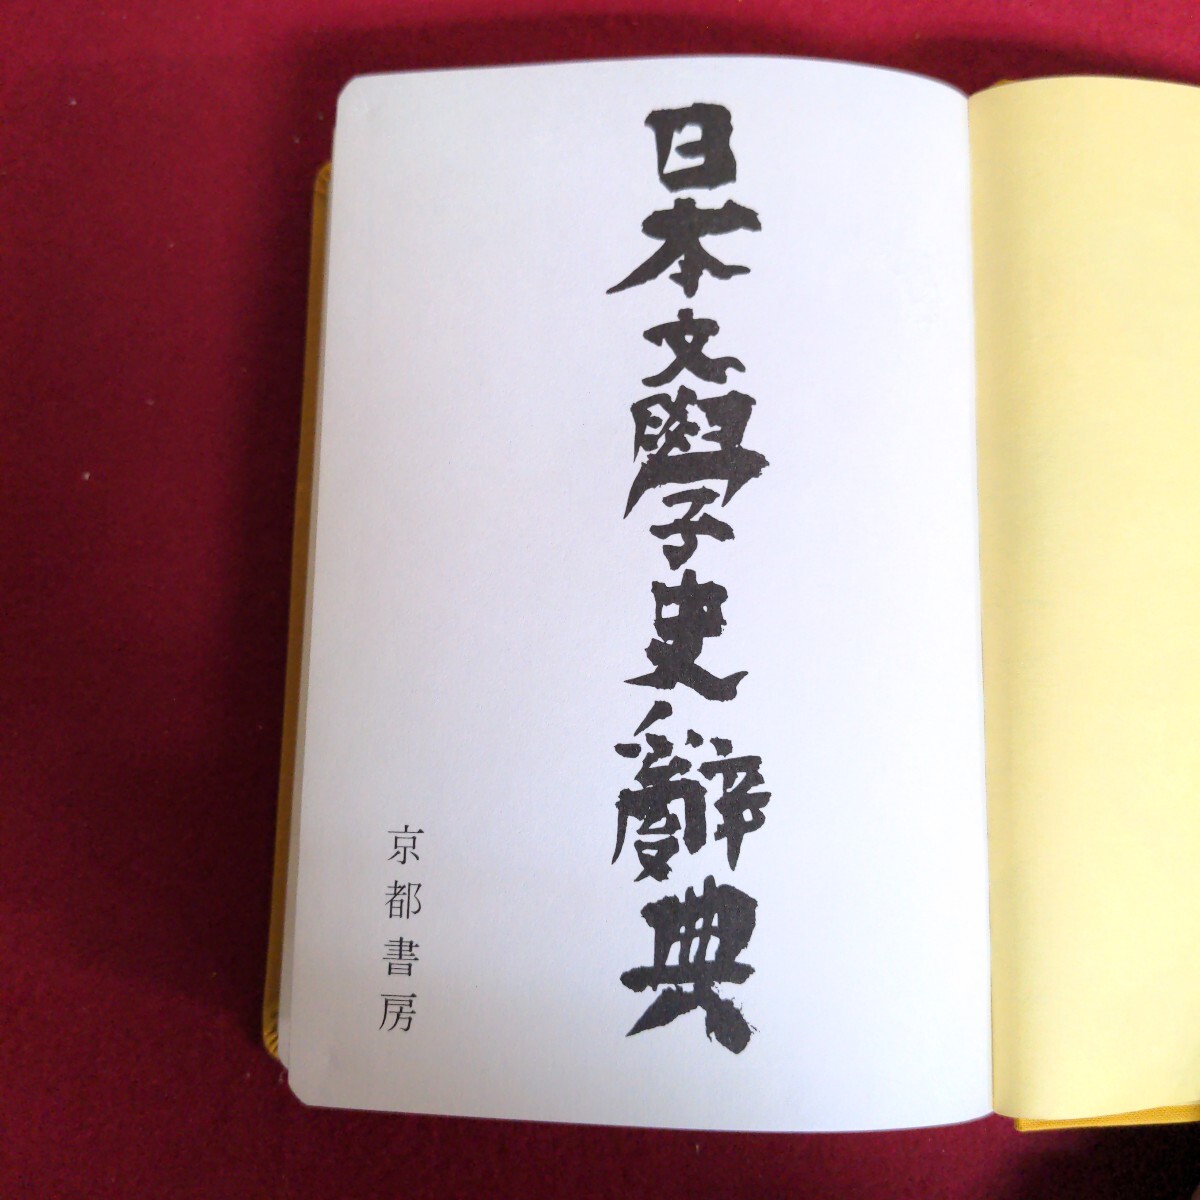 日本文學史辭典
京都書房